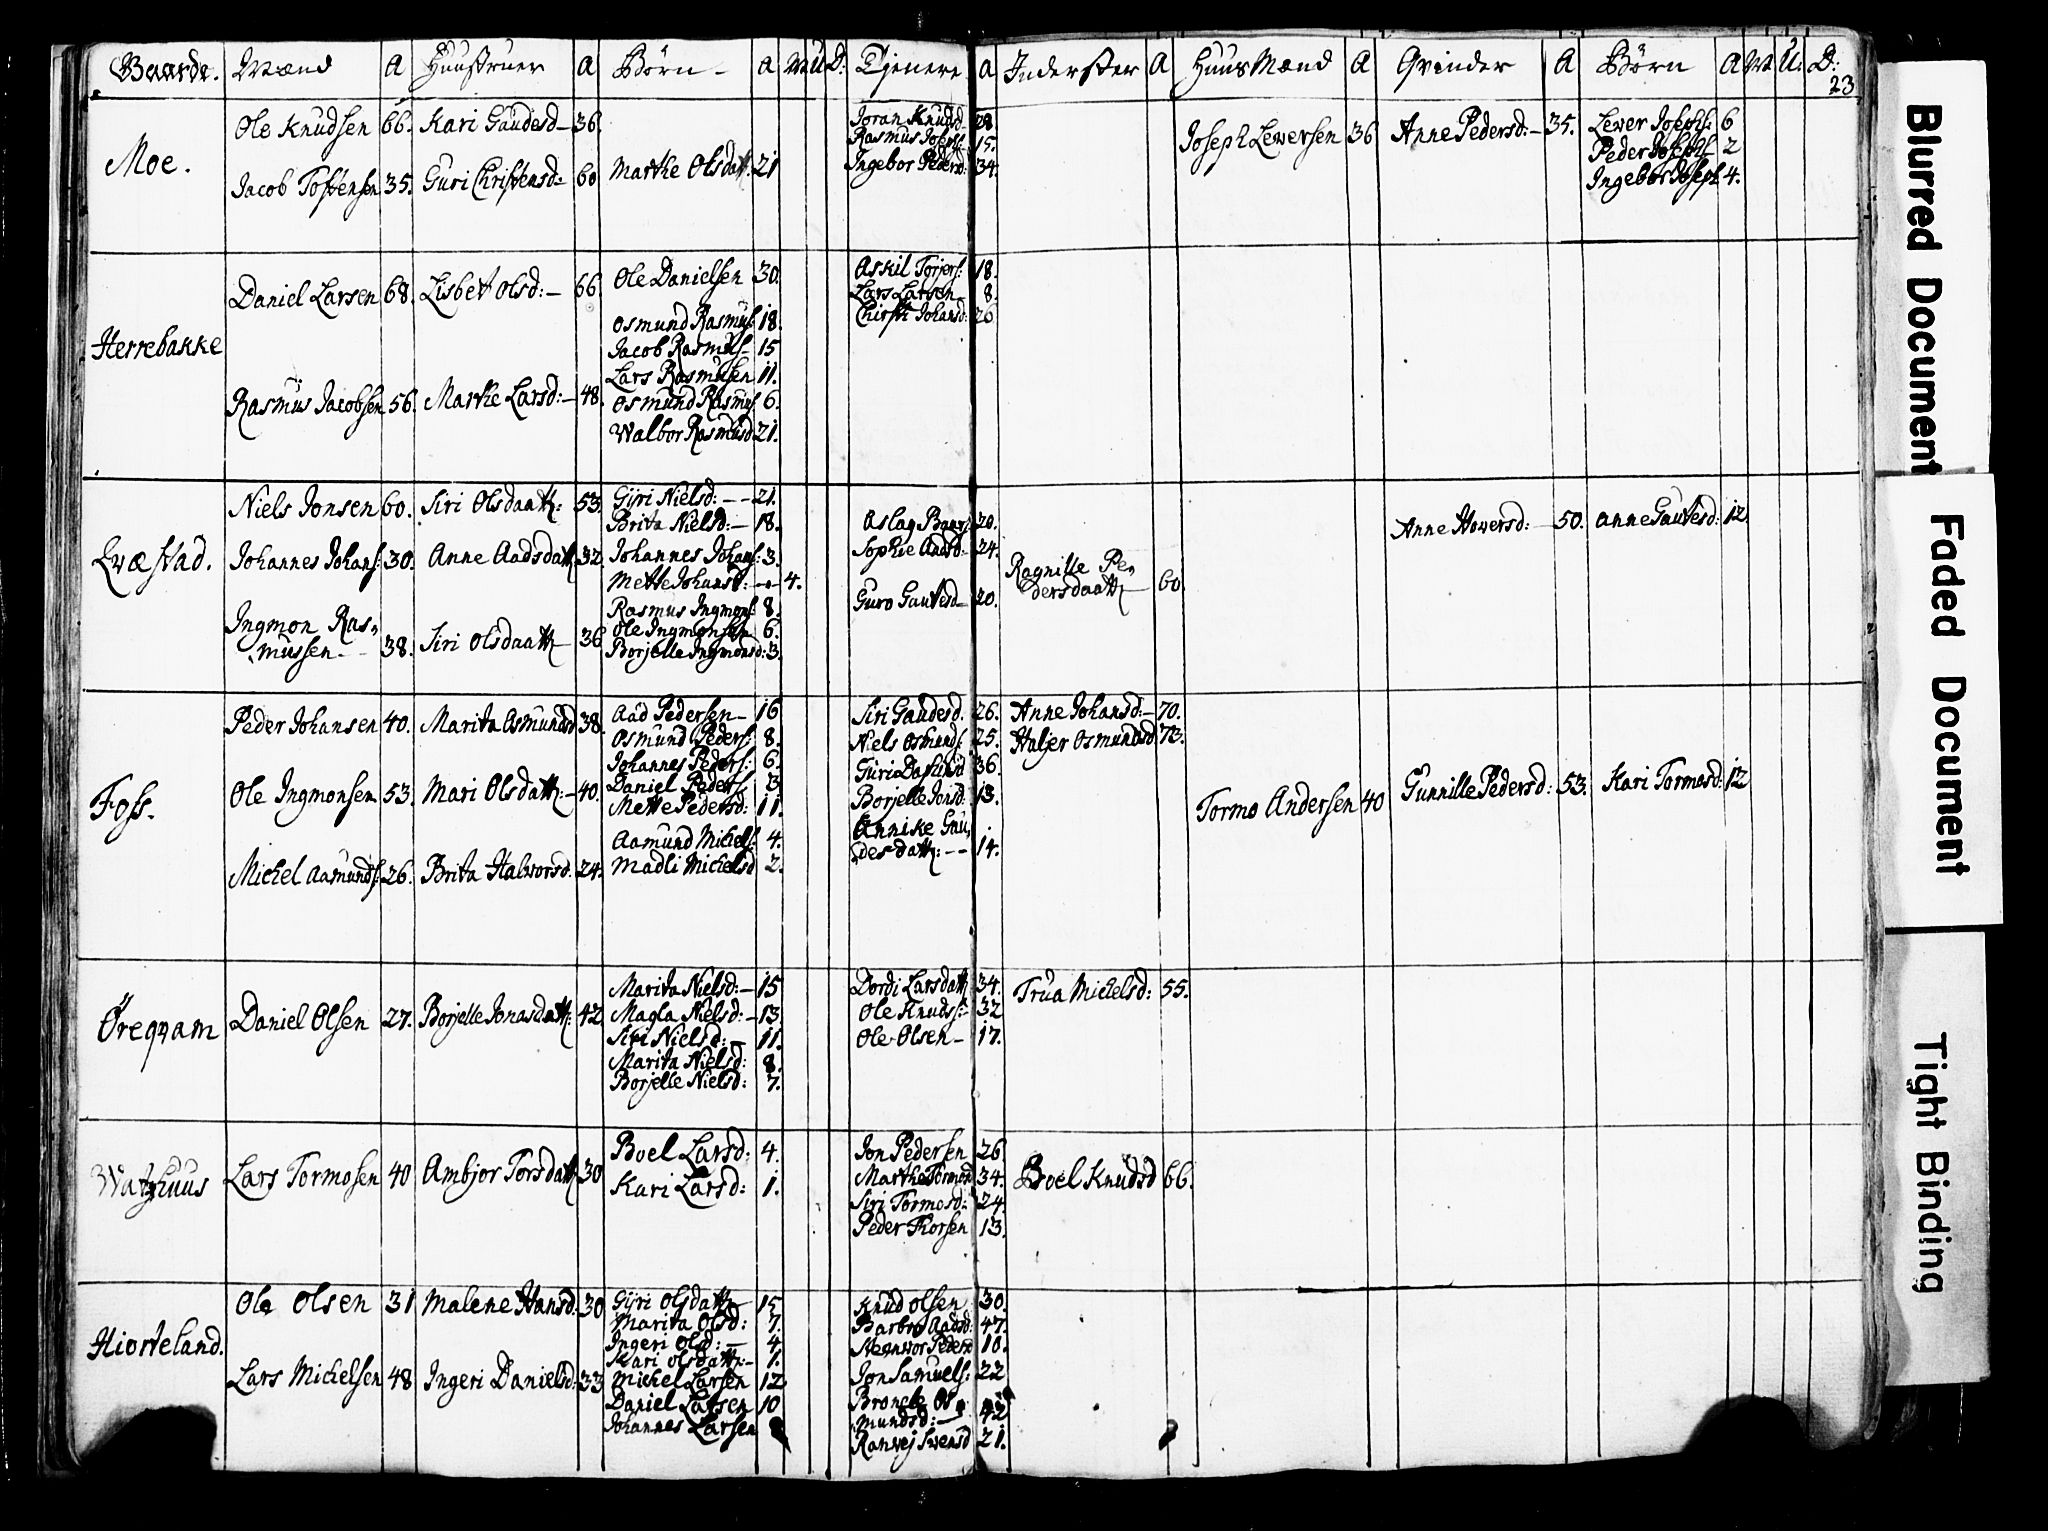 Gaarde. Mænd A Huustruer A Børn A M U D: Tjenere A Inderster A HuusMænd A Qvinder A Børn A M U: D:
23
Moe.
Ole Knudsen 66. Kari Gaudesd 36.
Jacob Tostensen 35. Guri Christensd: 60 Marthe Olsdatt. 21
Joran Knudsd 28
Rasmus Joseps: 15.
Ingebor Pedersd: 34.
Joseph Lewersen 36 Anne Pedersd: 35.
Lewer Josephs: 6
Peder Josephs 2
Ingebor Joseph 4.
Herrebakke
Daniel Larsen 68. Lisbet Olsd: 66. Ole Danielsen 30.
Rasmus Jacobsen 56. Marthe Larsd: 48.
Osmund Rasmus: 18.
Jacob Rasmus 15
Lars Rasmusen 11.
Osmund Rasmus 6.
Walbor Rasmusd 21.
Askil Torjers: 18.
Lars Larsen 8.
Chirsti Johansd: 26
Qvæstad.
Niels Jonsen 60. Siri Olsdaatt: 53.
Gyri Nielsd: 21.
Brita Nielsd: 18.
Johannes Johans: 30. Anne Aadsdatt 32.
Johannes Johans: 3.
Mette Johansd: 4.
Ingmon Ras-
mussen 38. Siri Olsdaatt 36
Rasmus Ingmons: 8.
Ole Ingmonsen 6.
Borjelle Ingmonsd: 3.
Aslag Baars: 20.
Sophie Aadsd: 24.
Guro Gautesd 20.
Ragnille Pe-
dersdaatt 60.
Anne Howersd: 50. Anne Gautesd: 12
Foss.
Peder Johansen 40. Marita Osmundsd 38.
Ole Ingmonsen 53. Mari Olsdatt: 40.
Michel Aamunds: 26. Brita Halworsd. 24.
Aad Pedersen 16
Osmund Peders: 8.
Johannes Peders: 6.
Daniel Peders 3
Mette Pedersd: 11.
Aamund Michels: 4.
Madli Michelsd 2.
Siri Gaudesd. 26.
Niels Osmunds: 25.
Guri 36.
Borjelle Jonsd: 13.
Annike Gau-
desdatt: 14.
Anne Johansd: 70.
Haljer Osmundsd 73.
Tormo Andersen 40 Gunnille Pedersd: 53. Kari Tormosd: 12
Öreqvam
Daniel Olsen 27. Borjelle Jonasdatt: 42
Marita Nielsd: 15
Magla Nielsd: 13
Siri Nielsd: 11.
Marita Nielsd: 8.
Borjelle Nielsd: 7.
Dordi Larsdatt. 34.
Ole Knuds: 32
Ole Olsen 17.
Trua Michelsd: 55.
Watzhuus
Lars Tormosen 40 Ambjor Torsdatt 30
Boel Larsd: 4.
Kari Larsd: 1.
Jon Pedersen 26
Marthe Tormosd 34.
Siri Tormosd: 24.
Peder Thorsen 13.
Boel Knudsd 66.
Hiorteland.
Ole Olsen 31 Malene Hansd: 30
Lars Michelsen 48 Ingeri Danielsd: 33
Gyri Olsdatt 15
Marita Olsd: 7.
Ingeri Olsd: 4.
Kari Olsdatt: 1.
Michel Larsen 12
Daniel Larsen 10
Johannes Larsen 8
Knud Olsen 30.
Barbro Aadsd: 47.
Peders 10.
Jon Samuels: 22
Os-
mundsd: 42
Ranvej Swensd 21.
Blurred Document
Faded Document
Tight Binding